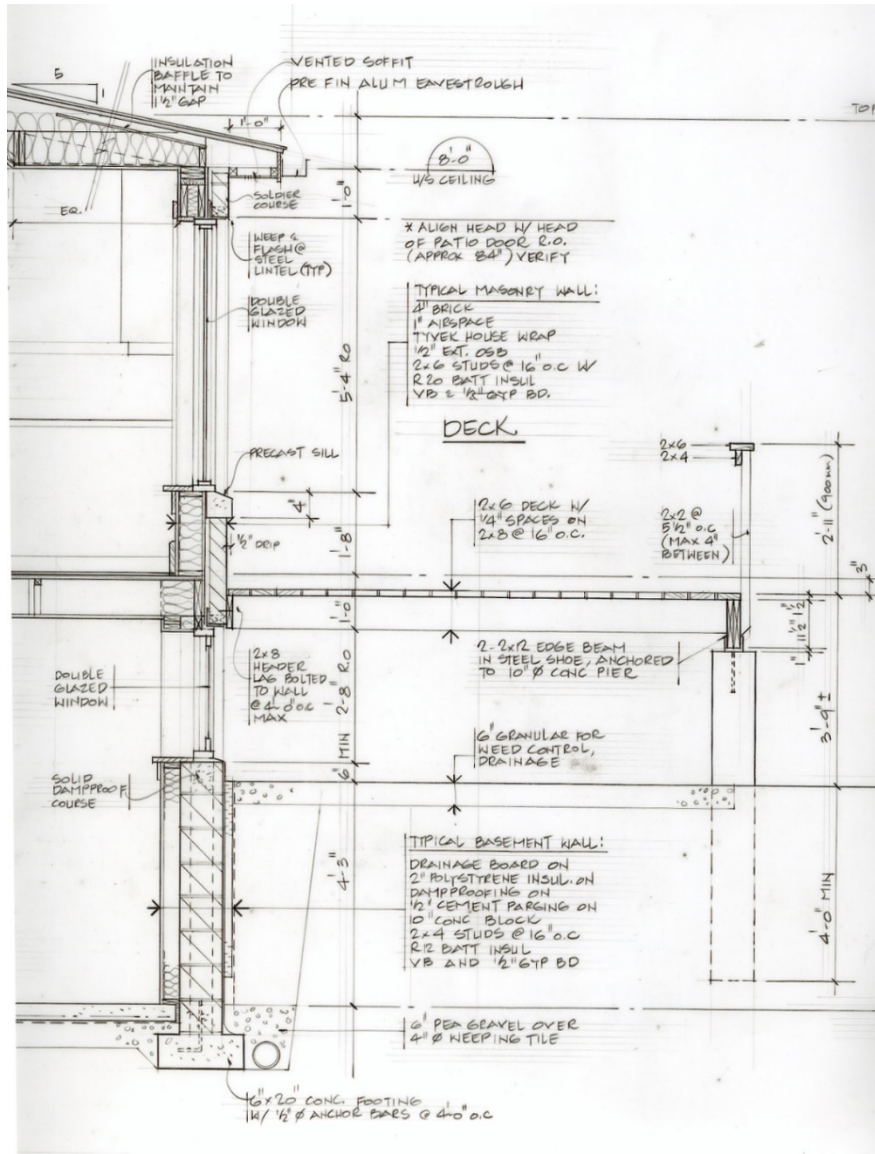 INSULATION
BAFFLE TO
MAINTAIN
1 1/2" GAP
VENTED SOFFIT
PRE FIN ALUM EAVESTROUGH
5
1
1'-0"
TOP
8'-0"
U/S CEILING
SOLDIER
COURSE
1'-0"
EQ.
WEEP &
FLASH @
STEEL
LINTEL (TYP)
* ALIGN HEAD W/ HEAD
OF PATIO DOOR R.O.
(APPROX 84") VERIFY
DOUBLE
GLAZED
WINDOW
TYPICAL MASONRY WALL:
4" BRICK
1" AIRSPACE
TYVEK HOUSE WRAP
1/2" EXT. OSB
2x6 STUDS @ 16" O.C W/
R20 BATT INSUL
VB & 1/2" GYP BD.
5'-4" RO
DECK
PRECAST SILL
4"
1/2" DRIP
1'-8"
2x6 DECK W/
1/4" SPACES ON
2x8 @ 16" O.C.
2x6
2x4
2x2 @
5 1/2" O.C
(MAX 4"
BETWEEN)
2'-11" (900mm)
3"
1'-0"
11 1/2"
2x8
HEADER
LAG BOLTED
TO WALL
@ 4'-0" O.C
MAX
2'-8" RO
2-2x12 EDGE BEAM
IN STEEL SHOE, ANCHORED
TO 10" Ø CONC PIER
DOUBLE
GLAZED
WINDOW
3'-9" ±
6" MIN
6" GRANULAR FOR
WEED CONTROL,
DRAINAGE
SOLID
DAMPPROOF
COURSE
4'-3"
TYPICAL BASEMENT WALL:
DRAINAGE BOARD ON
2" POLYSTYRENE INSUL. ON
DAMPPROOFING ON
1/2" CEMENT PARGING ON
10" CONC BLOCK
2x4 STUDS @ 16" O.C
R12 BATT INSUL
VB AND 1/2" GYP BD
4'-0" MIN
6" PEA GRAVEL OVER
4" Ø WEEPING TILE
6"x20" CONC. FOOTING
W/ 1/2" Ø ANCHOR BARS @ 4'-0" O.C